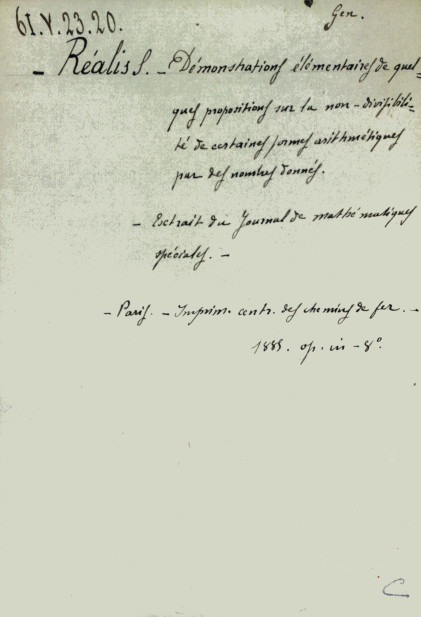 Gen.
61.V.23.20.
- Réalis S. - Démonstrations élémentaires de quel-
ques propositions sur la non-divisibili-
té de certaines formes arithmétiques
par des nombres donnés.
- Extrait du Journal de mathématiques
spéciales. -
- Paris. - Imprim. centr. des chemins de fer. -
1885. op. in-8°.
C